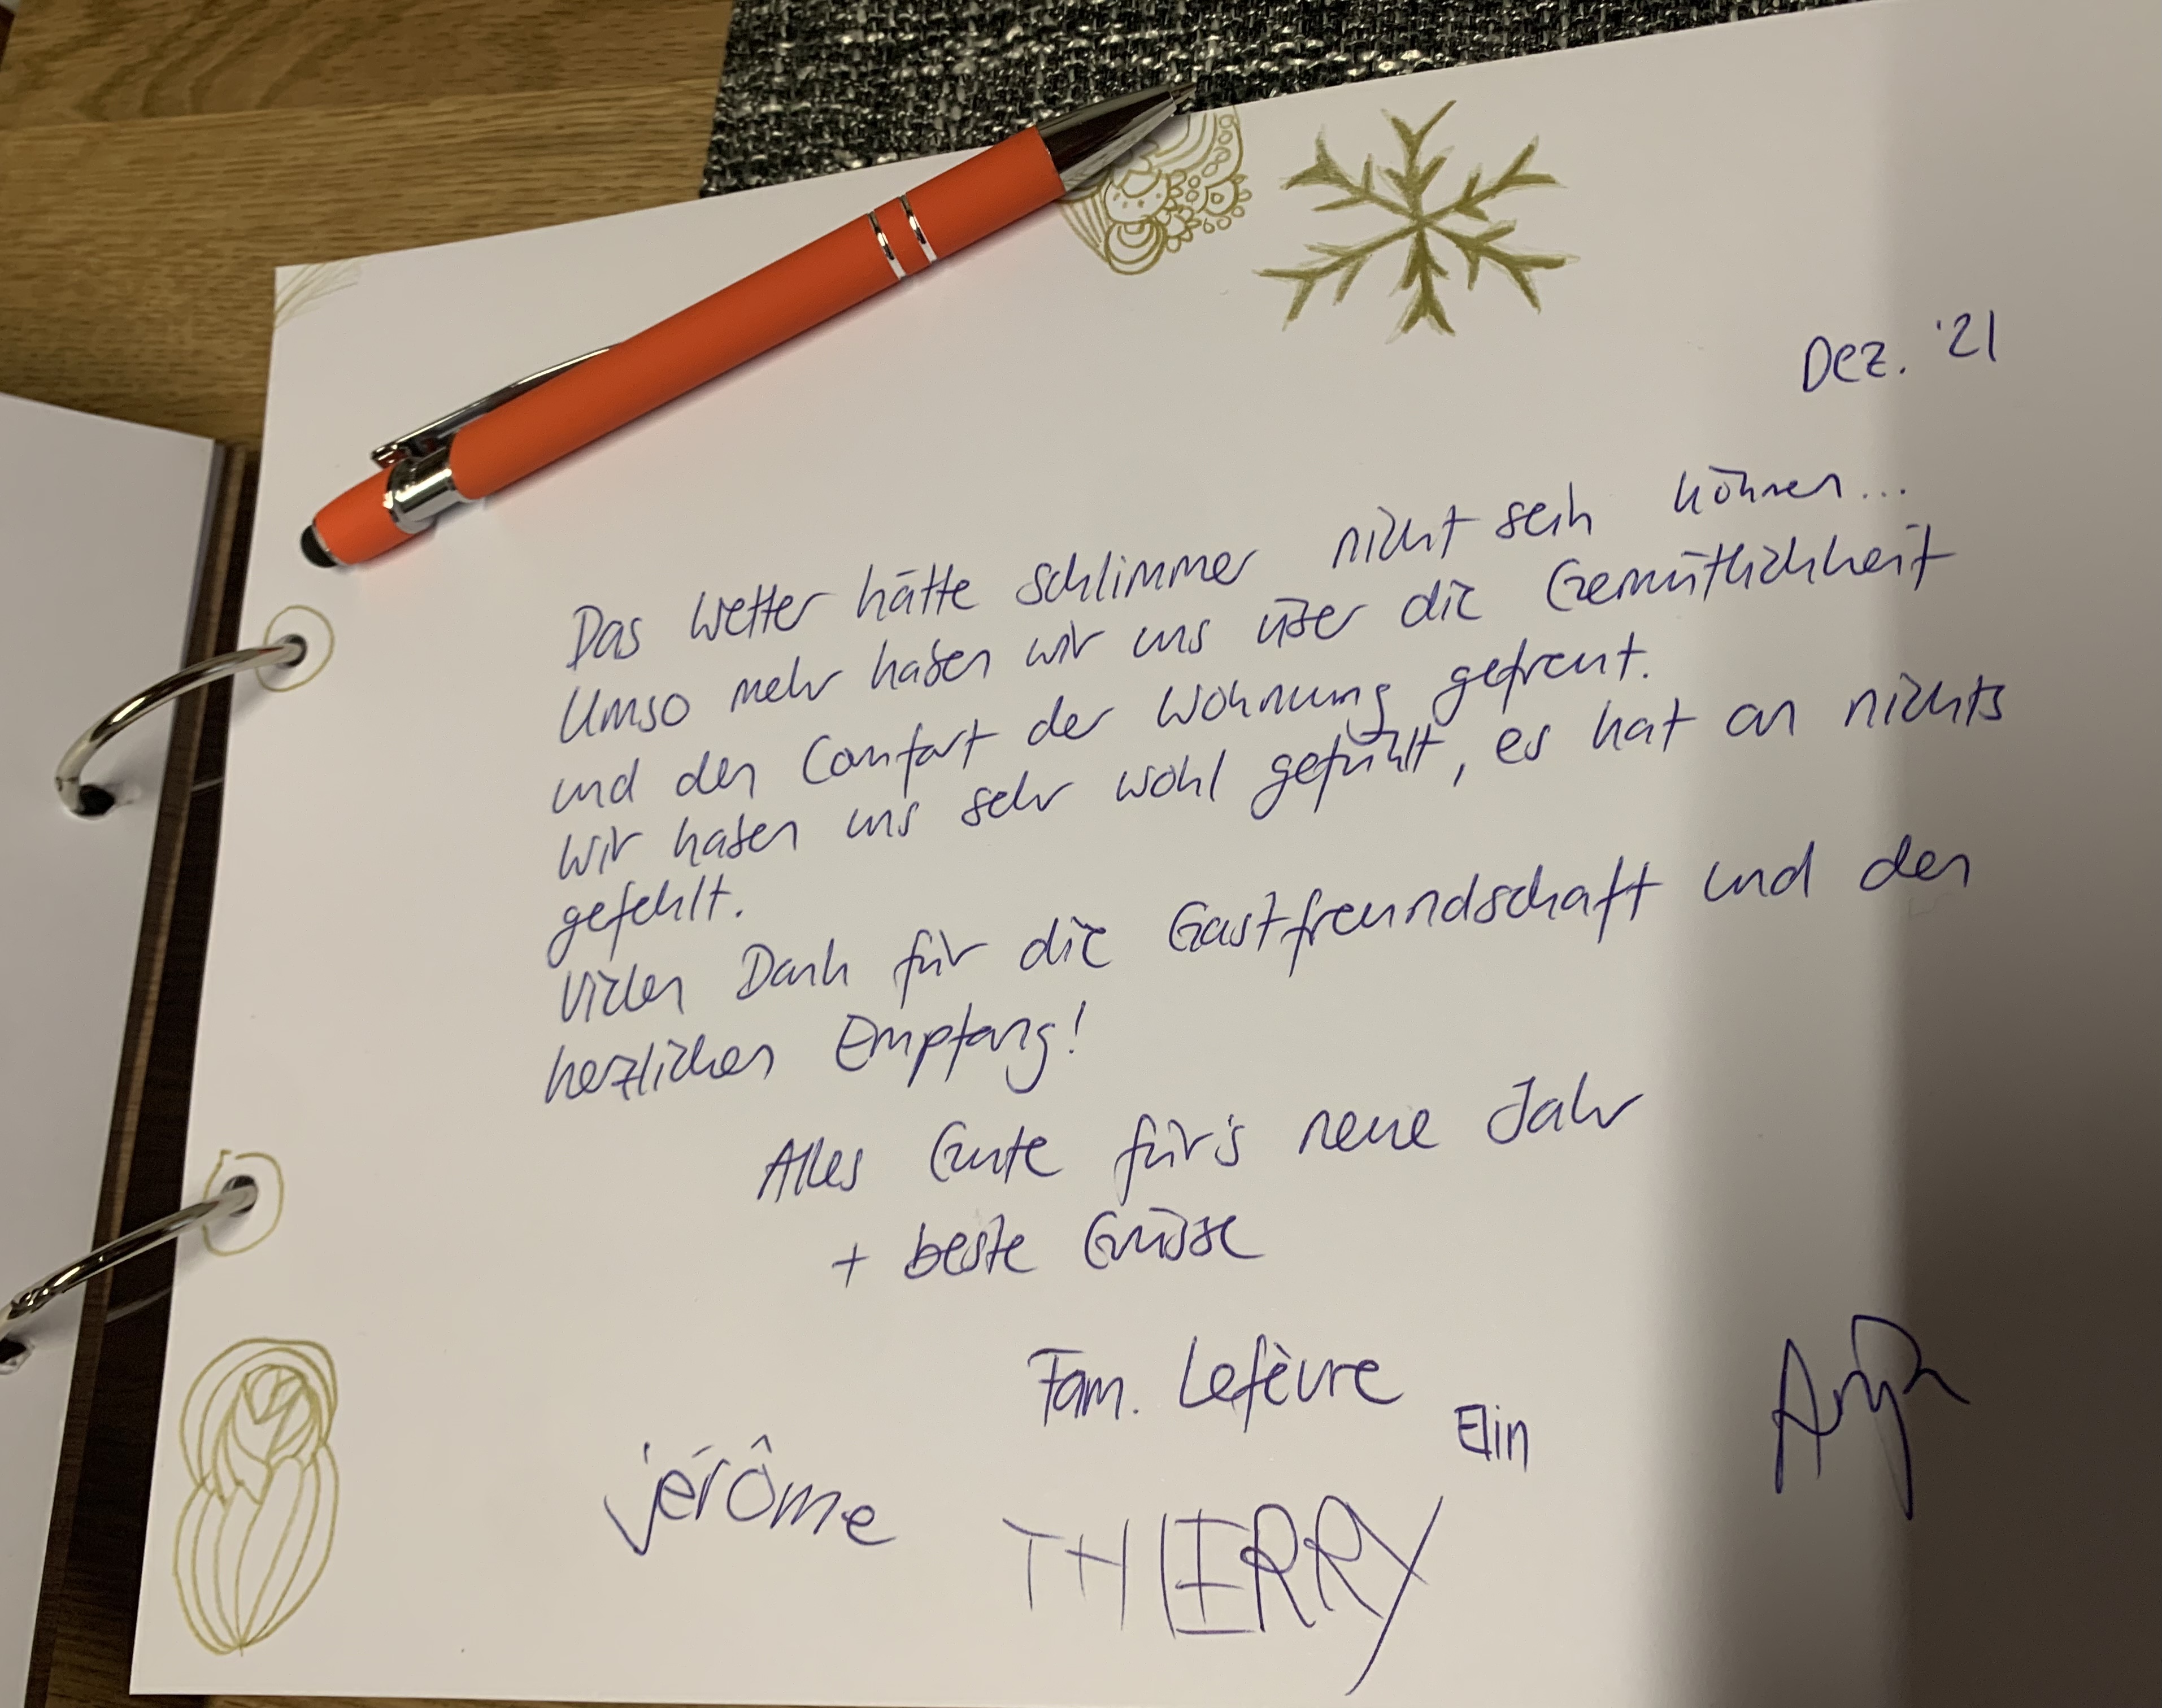 Dez. '21
Das Wetter hätte schlimmer nicht sein können...
Umso mehr haben wir uns über die Gemütlichkeit
und den Comfort der Wohnung gefreut.
Wir haben uns sehr wohl gefühlt, es hat an nichts
gefehlt.
Vielen Dank für die Gastfreundschaft und den
herzlichen Empfang!
Alles Gute für's neue Jahr
+ beste Grüsse
Fam. Lefèvre
Elin
jérôme
THIERRY